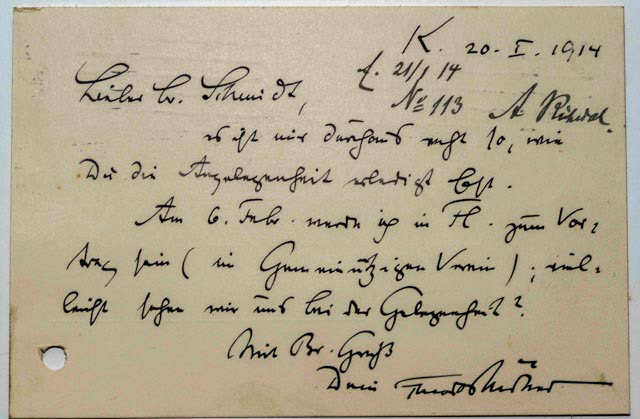 K. 20. I. 1914
E. 21/1 14
№ 113
Lieber Br. Schmidt,
es ist mir durchaus recht so, wie
Du die Angelegenheit erledigt hast.
Am 6. Febr. werde ich in Fl. zum Vor-
trag sein (im Gemeinnützigen Verein); viel-
leicht sehen wir uns bei der Gelegenheit?
Mit Br. Gruß
Dein